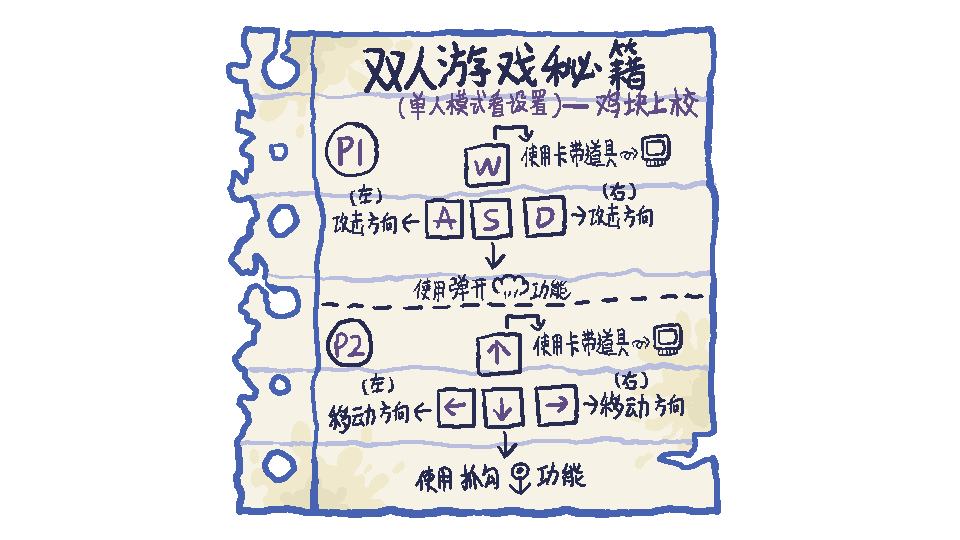 双人游戏秘籍
(单人模式看设置)—鸡块上校
P1
W
使用卡带道具
(左)
(右)
攻击方向←
A S D
→攻击方向
使用弹开
功能
P2
↑
使用卡带道具
(左)
(右)
移动方向←
← ↓ →
→移动方向
使用抓勾
功能